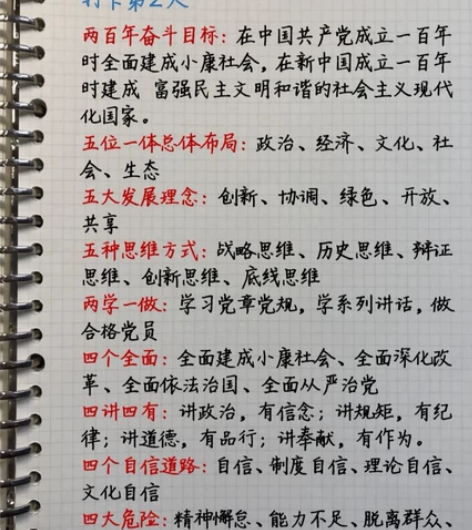 打卡第2天
两百年奋斗目标：在中国共产党成立一百年
时全面建成小康社会，在新中国成立一百年
时建成 富强民主文明和谐的社会主义现代
化国家。
五位一体总体布局：政治、经济、文化、社
会、生态
五大发展理念：创新、协调、绿色、开放、
共享
五种思维方式：战略思维、历史思维、辩证
思维、创新思维、底线思维
两学一做：学习党章党规，学系列讲话，做
合格党员
四个全面：全面建成小康社会、全面深化改
革、全面依法治国、全面从严治党
四讲四有：讲政治，有信念；讲规矩，有纪
律；讲道德，有品行；讲奉献，有作为。
四个自信道路：自信、制度自信、理论自信、
文化自信
四大危险：精神懈怠、能力不足、脱离群众、